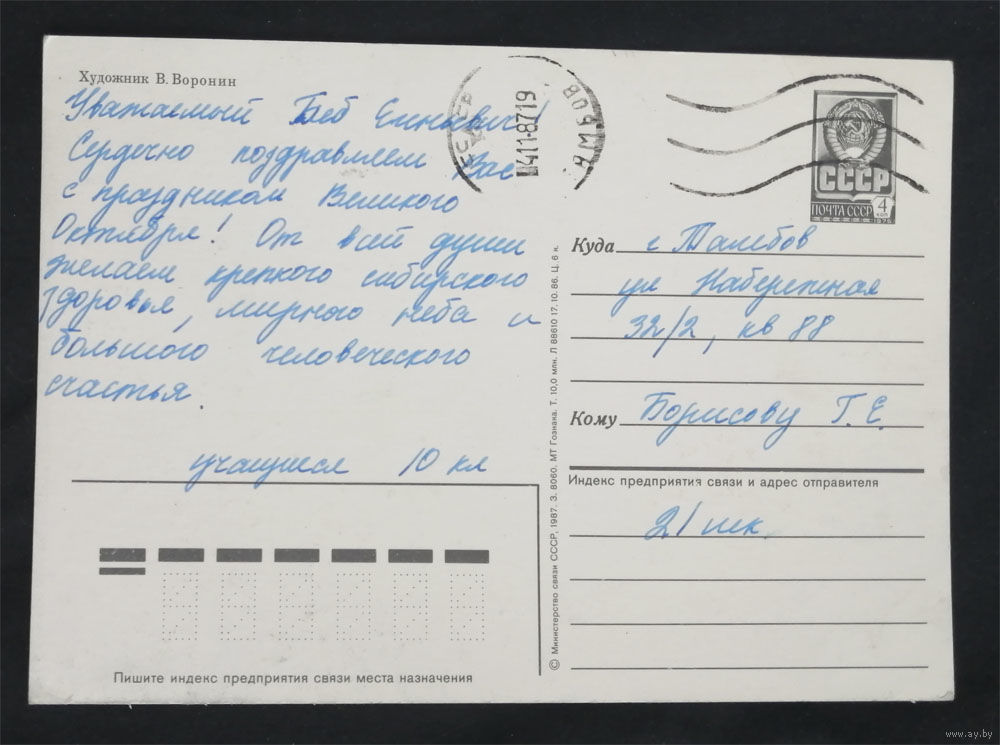 Художник В. Воронин
Уважаемый Глеб
Сердечно поздравляем Вас
с праздником Великого
Октября! От всей души
желаем крепкого сибирского
здоровья, мирного неба и
большого человеческого
счастья.
учащиеся 10 кл
Пишите индекс предприятия связи места назначения
© Министерство связи СССР, 1987. З. 8060. МТ Гознака. Т. 10,0 млн. Л 88610 17.10.86. Ц. 6 к.
ТАМБОВ
СССР
ПОЧТА СССР
4
КОП
Куда г Тамбов
ул Набережная
32/2, кв 88
Кому Борисову Г. Е.
Индекс предприятия связи и адрес отправителя
21 шк.
www.ay.by